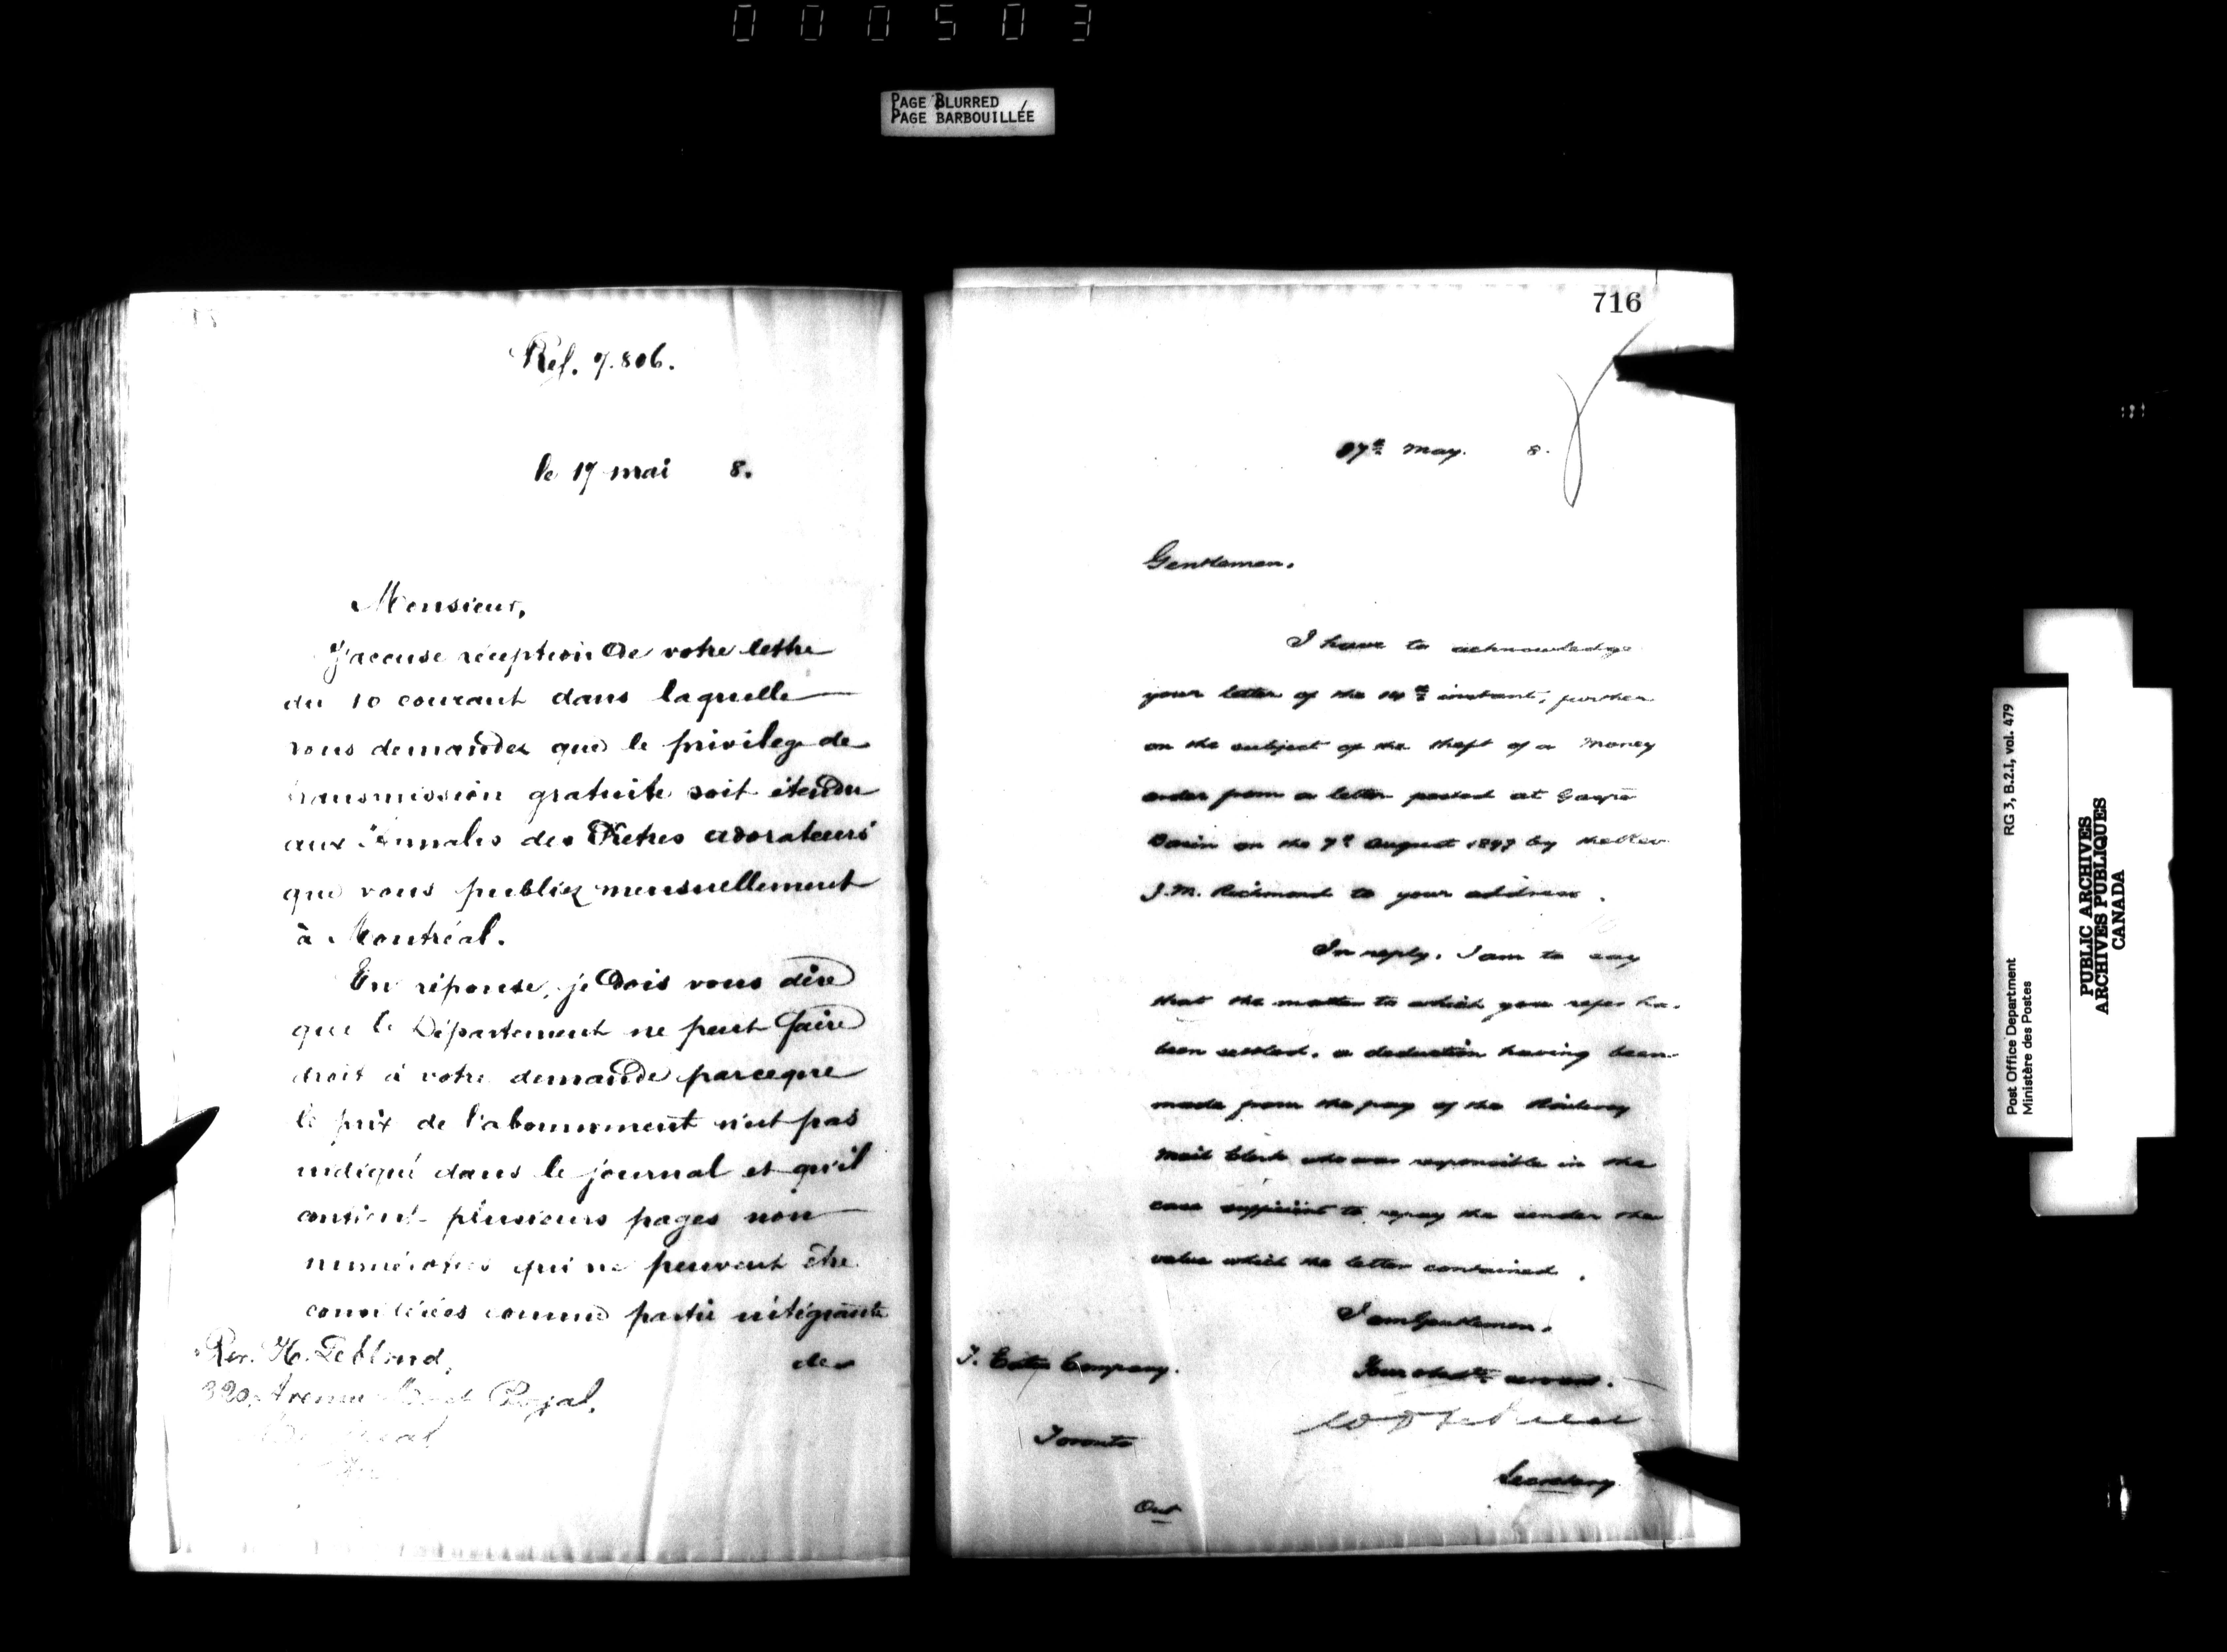 000503
PAGE BLURRED
PAGE BARBOUILLÉE
Ref. 7.806.
le 17 mai 8.
Monsieur,
J'accuse réception de votre lettre
du 10 courant dans laquelle
vous demandez que le privilege de
transmission gratuite soit étendu
aux Annales des Prêtres adorateurs
que vous publiez mensuellement
à Montréal.
En réponse, je dois vous dire
que le Département ne peut faire
droit à votre demande parceque
le prix de l'abonnement n'est pas
indiqué dans le journal et qu'il
contient plusieurs pages non
numérotées qui ne peuvent être
considérées comme partie intégrante
des
Rev. H. Leblond,
320, Avenue Mont Royal,
Montréal
716
17th May. 8.
Gentlemen.
I have to acknowledge
your letter of the 14th instant, further
on the subject of the theft of a Money
order from a letter posted at Gaspé
Basin on the 7th August 1897 by the Rev
J.M. Richmond to your address.
In reply. I am to say
that the matter to which you refer has
been settled, a deduction having been
made from the pay of the Railway
Mail Clerk who was responsible in the
case sufficient to repay the sender the
value which the letter contained.
I am Gentlemen.
Your obedt. servant.
Secretary
T. Eaton Company.
Toronto
Ont
RG 3, B.2.I, vol. 479
Post Office Department
Ministère des Postes
PUBLIC ARCHIVES
ARCHIVES PUBLIQUES
CANADA